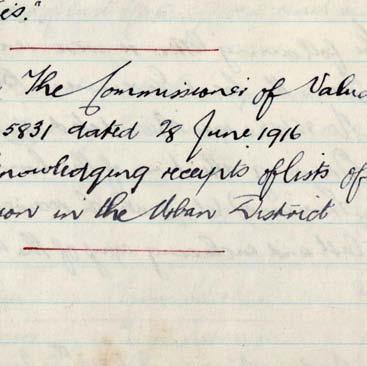 is."
The Commissioner of Valua
5831 dated 28 June 1916
knowledging receipts of lists of
ion in the Urban District